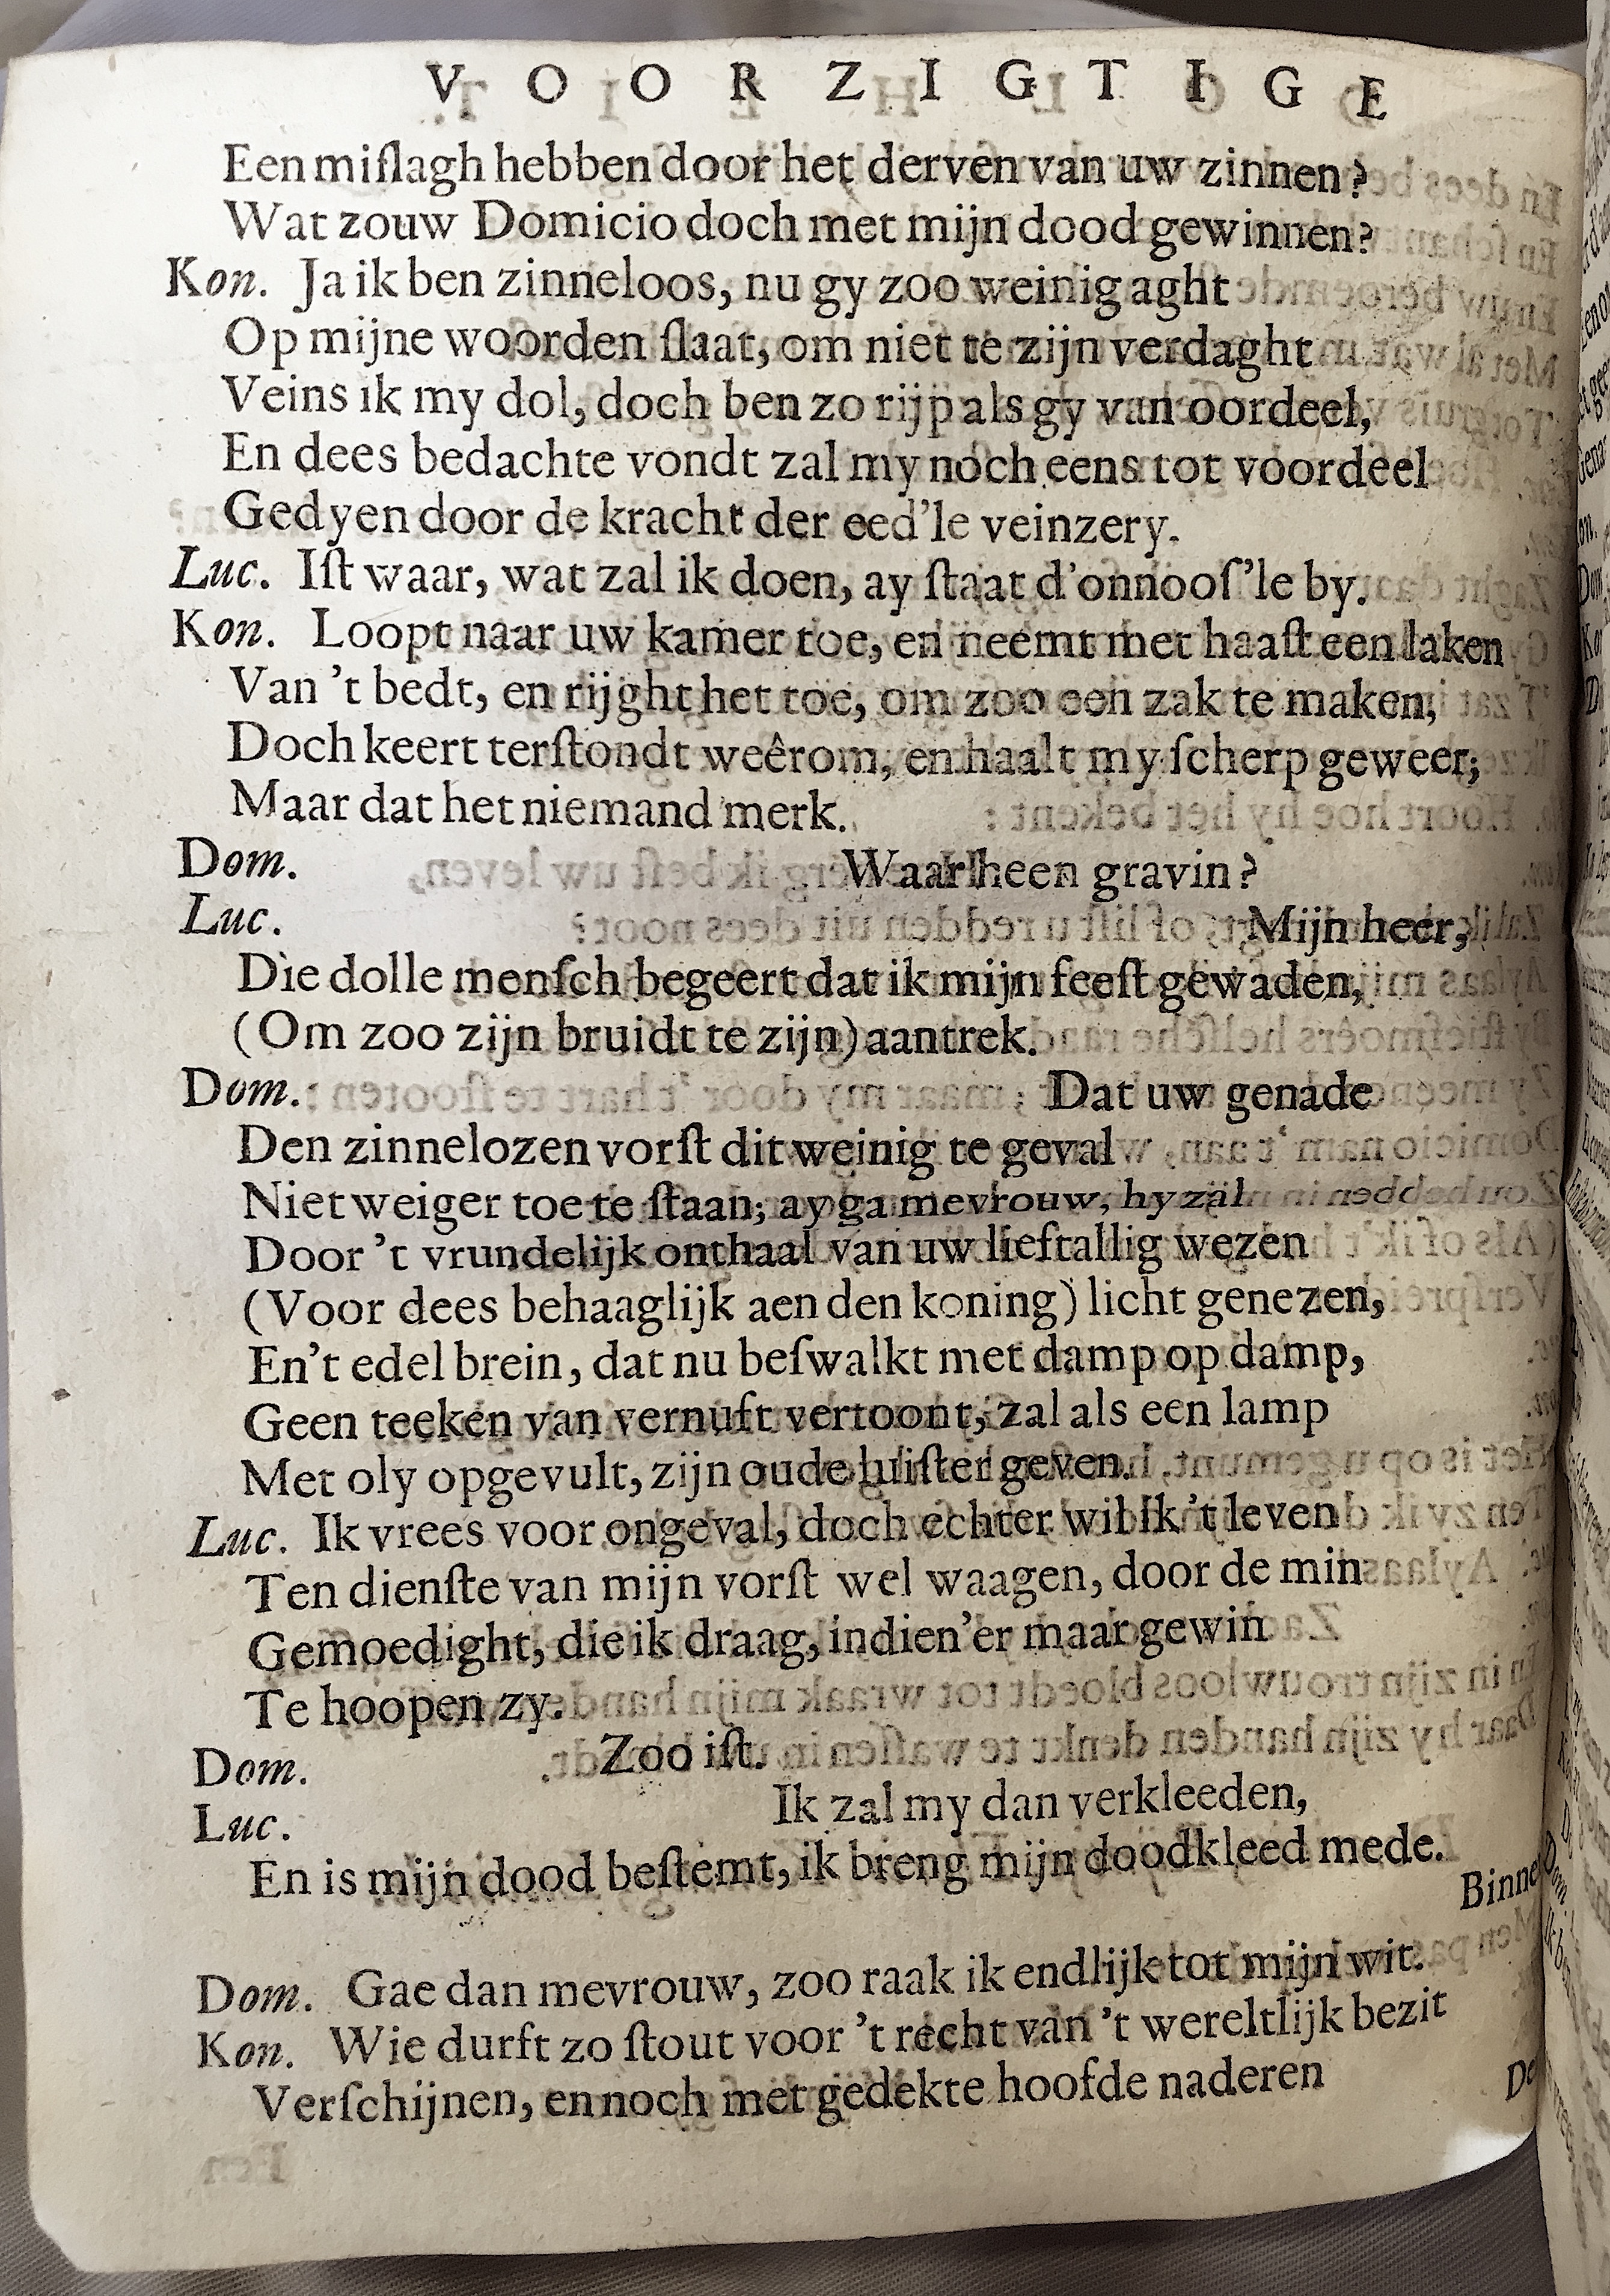 VOORZIGTIGE
Een miſlagh hebben door het derven van uw zinnen?
Wat zouw Domicio doch met mijn dood gewinnen?
Kon. Ja ik ben zinneloos, nu gy zoo weinig aght
Op mijne woorden ſlaat, om niet te zijn verdaght
Veins ik my dol, doch ben zo rijp als gy van oordeel,
En dees bedachte vondt zal my noch eens tot voordeel
Gedyen door de kracht der eed'le veinzery.
Luc. Iſt waar, wat zal ik doen, ay ſtaat d'onnooſ'le by.
Kon. Loopt naar uw kamer toe, en neemt met haaſt een laken
Van 't bedt, en rijght het toe, om zoo een zak te maken,
Doch keert terſtondt weêrom, en haalt my ſcherp geweer;
Maar dat het niemand merk.
Dom. Waar heen gravin?
Luc. Mijn heer,
Die dolle menſch begeert dat ik mijn feeſt gewaden,
(Om zoo zijn bruidt te zijn) aantrek.
Dom. Dat uw genade
Den zinnelozen vorſt dit weinig te geval
Niet weiger toe te ſtaan; ay ga mevrouw, hy zal
Door 't vrundelijk onthaal van uw lieftallig wezen
(Voor dees behaaglijk aen den koning) licht genezen,
En't edel brein, dat nu beſwalkt met damp op damp,
Geen teeken van vernuft vertoont, zal als een lamp
Met oly opgevult, zijn oude luiſter geven.
Luc. Ik vrees voor ongeval, doch echter wil ik 't leven
Ten dienſte van mijn vorſt wel waagen, door de min
Gemoedight, die ik draag, indien'er maar gewin
Te hoopen zy.
Dom. Zoo iſt.
Luc. Ik zal my dan verkleeden,
En is mijn dood beſtemt, ik breng mijn doodkleed mede.
Binne
Dom. Gae dan mevrouw, zoo raak ik endlijk tot mijn wit.
Kon. Wie durft zo ſtout voor 't recht van 't wereltlijk bezit
Verſchijnen, en noch met gedekte hoofde naderen
De